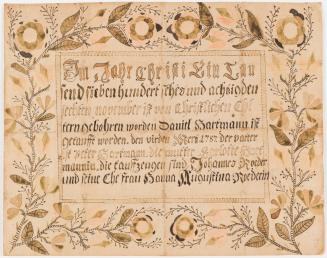 Im Jahr Christi Ein Tau
send sieben hundert sches und achzig den
sechten november ist von Christlichen Ehe
tern gebohren worden Daniel Hartmann ist
getaufft worden, den virden Merz 1787 der vatter
ist Peter Hartman, die mutter Hart
mannin, die tauffzeugen sind, Johannes Roeder
und seine Ehe frau Hanna Augustina Roederin